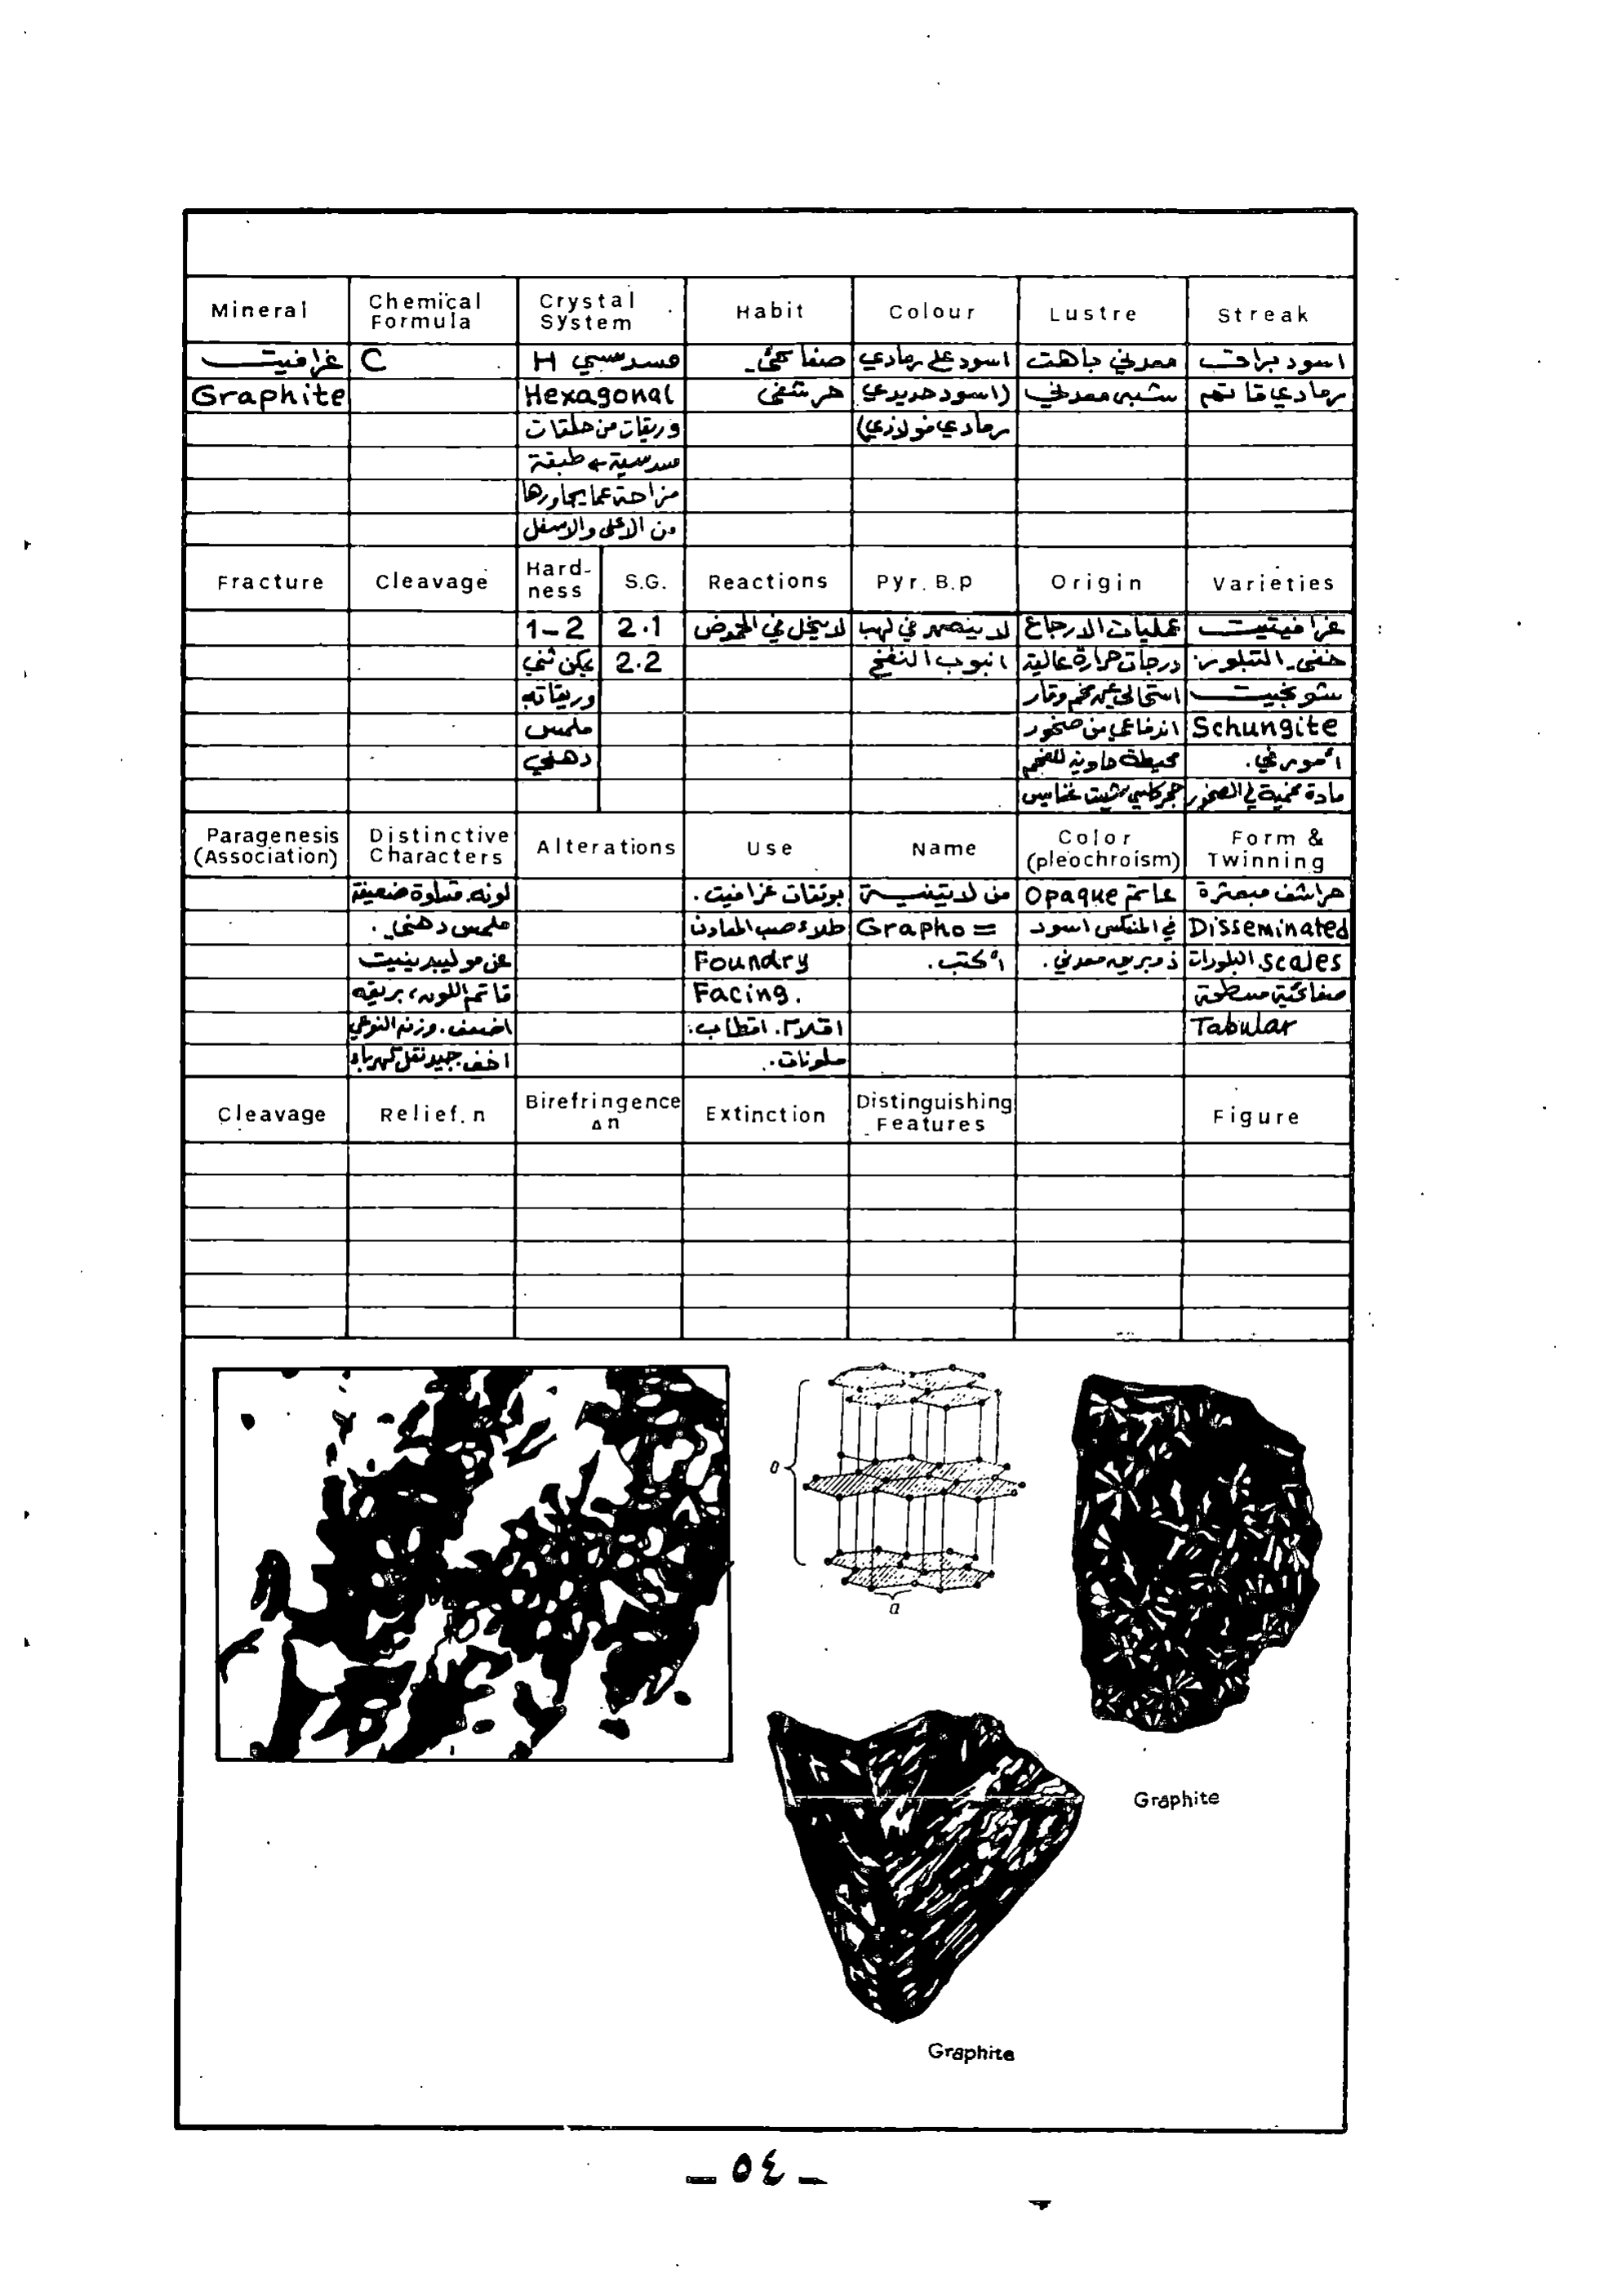 Mineral Chemical Formula Crystal System Habit Colour Lustre Streak
غرافيت C سدسي H صفائحي اسود على رمادي معدني باهت اسود براق
Graphite Hexagonal حرشفي (اسود حديدي شبه معدني رمادي قاتم
وريقات من حلقات رمادي فولاذي)
سدسية ← طبقة
مزاحة عما يجاورها
من الاعلى والاسفل
Fracture Cleavage Hardness S.G. Reactions Pyr. B.p Origin Varieties
1-2 2.1 لا ينحل في الحموض لا ينصهر في لهب عمليات الارجاع غرافيتيت
يمكن ثني 2.2 انبوب النفخ درجات حرارة عالية خفي التبلور
وريقاته استحالي عن فحم وقار شونجيت
ملمس اندفاعي من صخور Schungite
دهني محيطة حاوية للفحم أمورفي.
حجر كلسي شيست غنايس مادة فحمية في الصخور
Paragenesis (Association) Distinctive Characters Alterations Use Name Color (pleochroism) Form & Twinning
لونه. قساوة ضعيفة بوتقات غرافيت. من لاتينية Opaque عاتم حراشف مبعثرة
ملمس دهني. طلاء صب المعادن Grapho = في المنعكس اسود Disseminated
عن موليبدينيت Foundry أكتب. ذو بريق معدني. scales. البلورات
قاتم اللون، بريقه Facing. صفائحية مسطحة
اضعف. وزنه النوعي اقلام. اقطاب. Tabular
اخف. جيد نقل كهرباء ملونات.
Cleavage Relief. n Birefringence Δn Extinction Distinguishing Features Figure
o
a
Graphite
Graphite
_ ٥٤ _